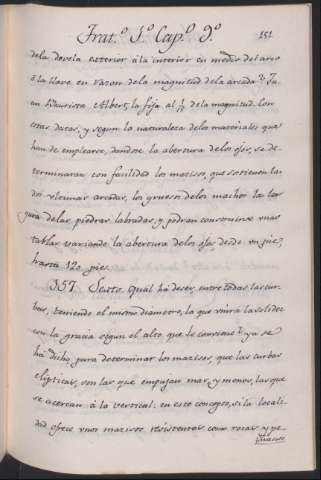 Trat.º 1.º Cap.º 9.º 151
dela dovela exterior à la interior en medio del arco
ò la llave en razon dela magnitud dela arcada Ju-
an Bautista Albert, la fixa al dela magnitud. con
estos datos, y segun la naturaleza delos materiales que
han de emplearse, dandose la abertura delos ojos, se de-
terminaran con facilidad los macisos, que sostienen las
dos ultimas arcadas, los gruesos delos machos la lar
gura delas piedras labradas, y podran construirse unas
tablas variando la abertura delos ojos, desde un pie,
hasta 120 pies.
357. Sexto. Qual há deser, entre todas las cur-
bas, teniendo el mismo diametro, la que unirá la solidez
con la gracia segun el alto que le conviene? ya se
há dicho, para determinar los macisos, que las curbas
elipticas, son las que empujan mas, y menos, las que
se acercan à la vertical: en este concepto, si la locali
dad ofrece unos macisos resistentes, como rocas, y pe